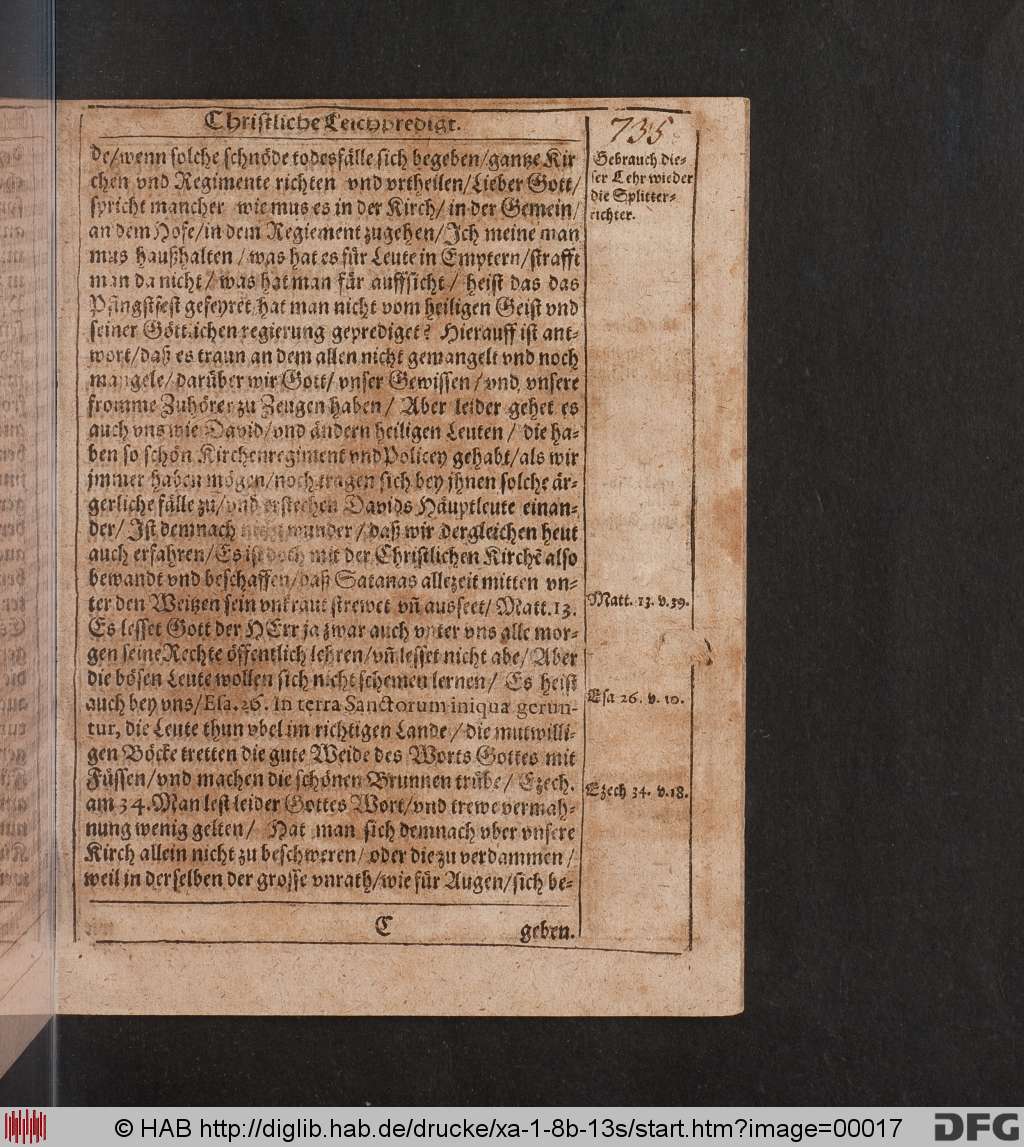 Christliche Leichpredigt.
735
de/wenn solche schnöde todesfälle sich begeben/gantze Kir
chen vnd Regimente richten vnd vrtheilen/Lieber Gott/
spricht mancher wie mus es in der Kirch/in der Gemein/
an dem Hofe/in dem Regiement zugehen/Ich meine man
mus haußhalten/was hat es für Leute in Emptern/strafft
man da nicht/was hat man für auffsicht/ heist das das
Pfingstfest gefeyret/hat man nicht vom heiligen Geist vnd
seiner Göttlichen regierung geprediget? Hierauff ist ant-
wort/daß es traun an dem allen nicht gemangelt vnd noch
mangele/darüber wir Gott/vnser Gewissen/vnd vnsere
fromme Zuhörer zu Zeugen haben/ Aber leider gehet es
auch vns wie David/vnd andern heiligen Leuten/ die ha-
ben so schön Kirchenregiment vnd Policey gehabt/als wir
jmmer haben mögen/noch tragen sich bey jhnen solche är-
gerliche fälle zu/vnd erstechen Davids Häuptleute einan-
der/ Ist demnach nicht wunder/daß wir dergleichen heut
auch erfahren/Es ist doch mit der Christlichen Kirchē also
bewandt vnd beschaffen/daß Satanas allezeit mitten vn-
ter den Weitzen sein vnkraut strewet vn̄ ausseet/Matt.13.
Es lesset Gott der HErr ja zwar auch vnter vns alle mor-
gen seine Rechte öffentlich lehren/vn̄ lesset nicht abe/Aber
die bösen Leute wollen sich nicht schemen lernen/ Es heist
auch bey vns/Esa.26. In terra Sanctorum iniqua gerun-
tur, die Leute thun vbel im richtigen Lande/die mutwilli-
gen Böcke tretten die gute Weide des Worts Gottes mit
Füssen/vnd machen die schönen Brunnen trübe/ Ezech.
am 34. Man lest leider Gottes Wort/vnd trewe vermah-
nung wenig gelten/ Hat man sich demnach vber vnsere
Kirch allein nicht zu beschweren/oder die zu verdammen/
weil in derselben der grosse vnrath/wie für Augen/sich be-
C
geben.
Gebrauch die-
ser Lehr wieder
die Splitter-
richter.
Matt. 13. v.39.
Esa 26. v. 10.
Ezech 34. v.18.
© HAB http://diglib.hab.de/drucke/xa-1-8b-13s/start.htm?image=00017
DFG